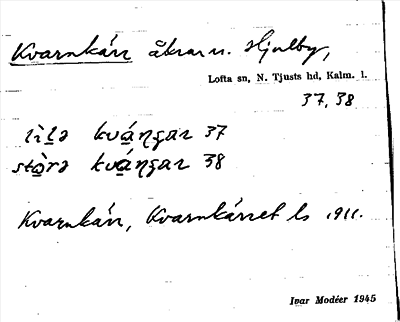 Kvarnkärr åkrar n. Hjulby,
Lofta sn, N. Tjusts hd, Kalm. l.
37, 38
kváŋgar 37
kváŋgar 38
Kvarnkärr, Kvarnkärret ls 1911.
Ivar Modéer 1945